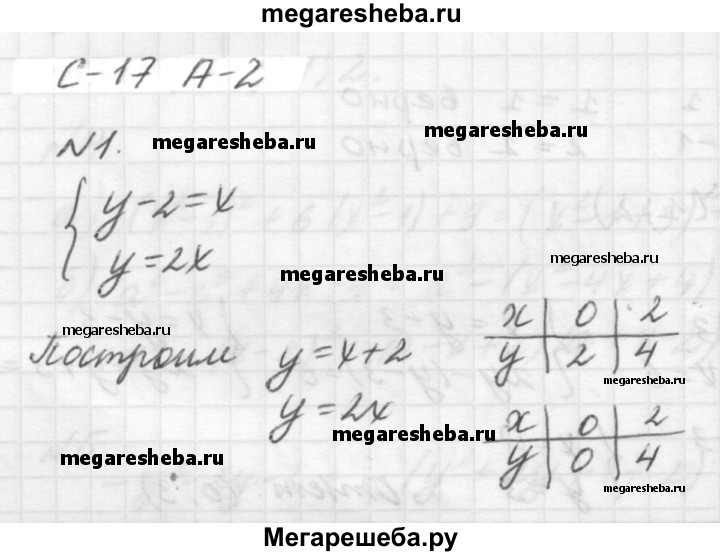 megaresheba.ru
С-17 А-2
№1. megaresheba.ru megaresheba.ru
{ y-2=x
y=2x
megaresheba.ru megaresheba.ru
megaresheba.ru
Построим y=x+2
y=2x
x | 0 | 2
y | 2 | 4
megaresheba.ru
x | 0 | 2
y | 0 | 4
megaresheba.ru
megaresheba.ru megaresheba.ru
Мегарешеба.ру